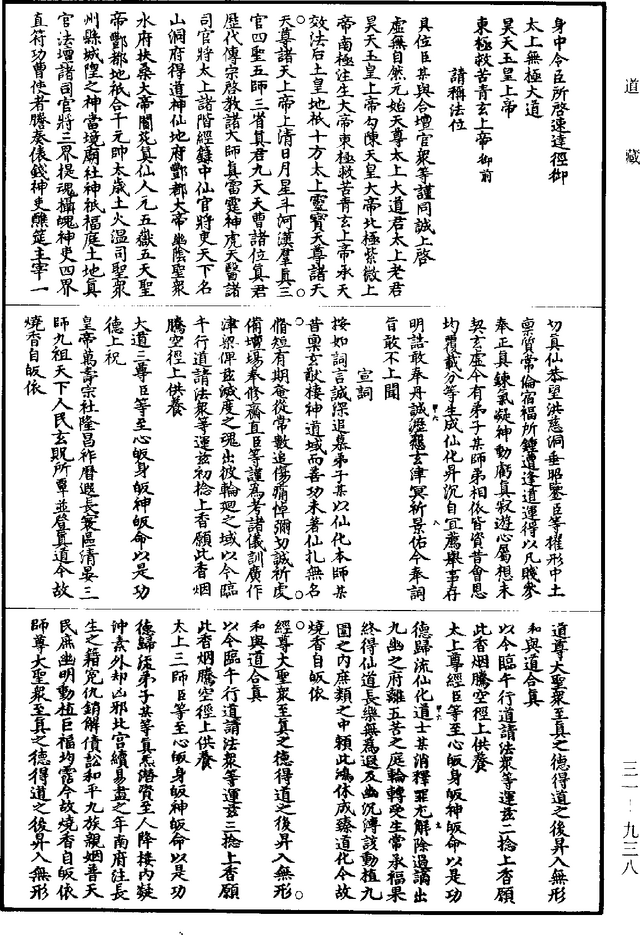 道藏
三一―九三八
身中令臣所啓速達徑御
太上無極大道
昊天玉皇上帝
東極救苦青玄上帝御前
請稱法位
具位臣某與合壇官衆等謹同誠上啓
虛無自然元始天尊太上大道君太上老君
昊天玉皇上帝勾陳天皇大帝北極紫微上
帝南極往生大帝東極救苦青玄上帝承天
效法后土皇地祇十方太上靈寶天尊諸天
天尊諸天上帝上清日月星斗河漢羣真三
官四聖五師三省真君九天天曹諸位真君
歷代傳宗啓教諸大師真雷霆神虎天醫諸
司官將太上諸階經籙中仙官將吏天下名
山洞府得道神仙地府酆都大帝幽陰聖衆
水府扶桑大帝闔宛真仙人元五嶽五天聖
帝酆都地祇合千元帥太歲土火温司聖衆
州縣城隍之神當境廟社神祇福庭土地真
官法壇諸司官將三界提魂攝魄神吏四界
直符功曹使者謄奏俵錢神吏醮筵主宰一
切真仙恭望洪慈洞垂昭鑒臣等權形中土
稟質常倫宿福所鍾遭逢道運得以凡賤參
奉正真鍊氣凝神動虧真寂遊心屬想未
契玄虛今有弟子某師弟相依皆資昔會恩
均覆載分等生成仙化昇沉自宜薦舉事存
明誥敢奉丹誠瀝懇玄津冥祈景佑今奉詞
旨敢不上聞
宣詞
按如詞言誠深追慕弟子某以仙化本師某
昔禀玄猷接神道域而善功未著仙札無名
脩短有期奄從常數追傷痛悼彌切誠祈處
備壇場奉修齋直臣等謹爲考諸儀訓廣作
津梁俾茲滅度之魂出彼輪廻之域以今臨
午行道請法衆等運茲初捻上香願此香烟
騰空徑上供養
大道三尊臣等至心皈身皈神皈命以是功
德上祝
皇帝萬壽宗社隆昌祚曆遐長寰區清晏三
師九祖天下人民玄貺所覃並登真道今故
燒香自皈依
道尊大聖衆至真之德得道之後昇入無形
和與道合真
以今臨午行道請法衆等運茲二捻上香願
此香烟騰空徑上供養
太上尊經臣等至心皈身皈神皈命以是功
德歸流仙化道士某消釋罪尤解除過謫出
九幽之府離五苦之庭輪轉受生常承福果
終得仙道長樂無爲遐及幽沉溥該動植九
圍之内庶類之中頼此鴻休咸臻道化今故
燒香自皈依
經尊大聖衆至真之德得道之後昇入無形
和與道合真
以今臨午行道請法衆等運茲三捻上香願
此香烟騰空徑上供養
太上三師臣等至心皈身皈神皈命以是功
德歸流弟子某等真炁潛資至人降接内凝
神素外却凶邪北宫續易盡之年南府注長
生之籍寃仇銷解債訟和平九族親姻普天
民庶幽明動植巨福均霑今故燒香自皈依
師尊大聖衆至真之德得道之後昇入無形